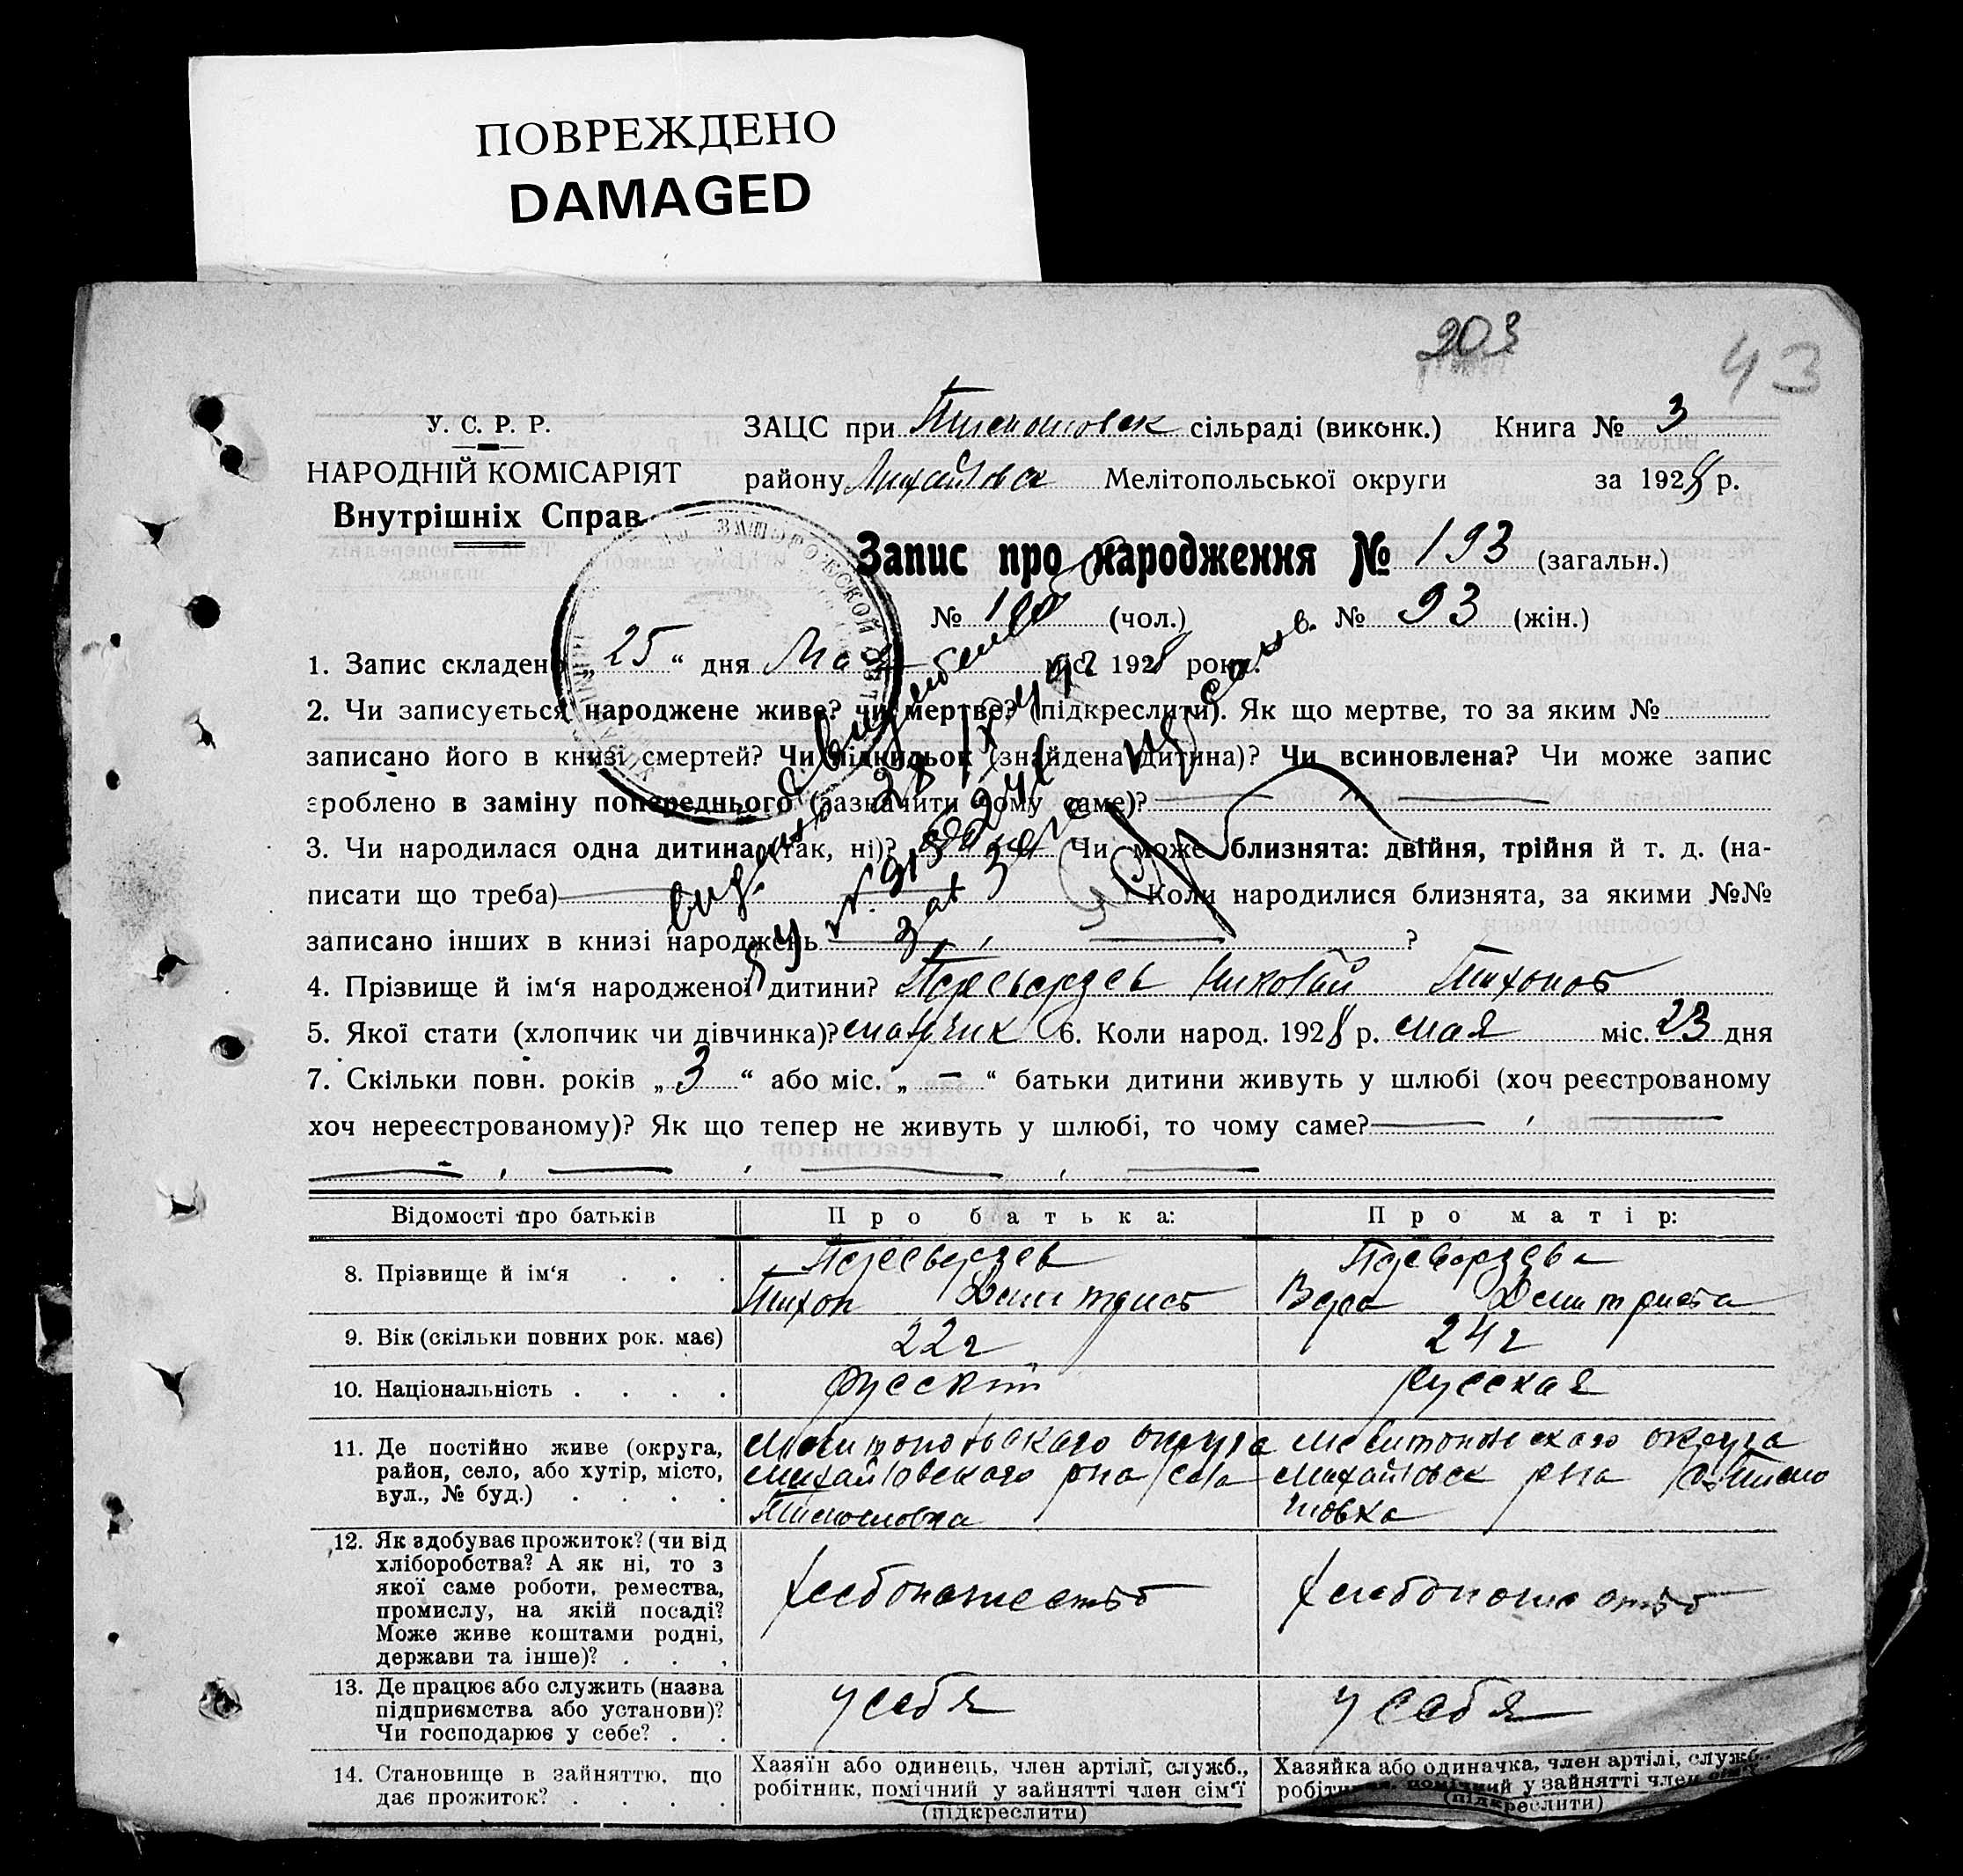 ПОВРЕЖДЕНО
DAMAGED
203
43
У. С. Р. Р.
НАРОДНІЙ КОМІСАРІЯТ
Внутрішніх Справ
ЗАЦС при Тимошовск сільраді (виконк.) Книга № 3
району Михайловск Мелітопольської округи за 1928 р.
Запис про народження № 193 (загальн.)
№ 100 (чол.) № 93 (жін.)
1. Запис складено „25“ дня Мая міс. 1928 року.
2. Чи записується народжене живе? чи мертве? (підкреслити). Як що мертве, то за яким №
записано його в книзі смертей? Чи підкидьок (знайдена дитина)? Чи всиновлена? Чи може запис
зроблено в заміну попереднього (зазначити чому саме)?
3. Чи народилася одна дитина (так, ні)? одна Чи може близнята: двійня, трійня й т. д. (на-
писати що треба) Коли народилися близнята, за якими №№
записано інших в книзі народжень ?
4. Прізвище й ім‘я народженої дитини? Переверзев Николай Тихонов
5. Якої стати (хлопчик чи дівчинка)? мальчик 6. Коли народ. 1928 р. мая міс. 23 дня
7. Скільки повн. років „3“ або міс. „—“ батьки дитини живуть у шлюбі (хоч реєстрованому
хоч нереєстрованому)? Як що тепер не живуть у шлюбі, то чому саме?
Відомості про батьків Про батька: Про матір:
8. Прізвище й ім‘я . . . Переверзев Переверзева
Тихон Дмитриев Вера Дмитриева
9. Вік (скільки повних рок. має) 22 г 24 г
10. Національність . . . . русский русская
11. Де постійно живе (округа, Мелитопольского округа Мелитопольского округа
район, село, або хутір, місто, Михайловского рна села Михайловск рна с. Тимо
вул., № буд.) . . . . Тимошовка шовка
12. Як здобуває прожиток? (чи від
хліборобства? А як ні, то з
якої саме роботи, ремества, хлебопашество хлебопашество
промислу, на якій посаді?
Може живе коштами родні,
держави та інше)? . . .
13. Де працює або служить (назва у себя у себя
підприємства або установи)?
Чи господарює у себе? . .
14. Становище в зайняттю, що Хазяїн або одинець, член артілі, служб., Хазяйка або одиначка, член артілі, служб.,
дає прожиток? . . . . робітник, помічний у зайнятті член сім‘ї помічний у зайнятті член
(підкреслити) (підкреслити)